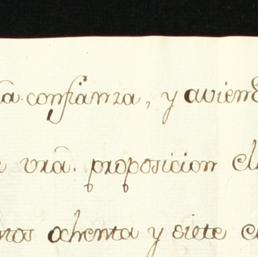 ra. confianza, y avien
vrã. proposicion el
nos ochenta y siete e